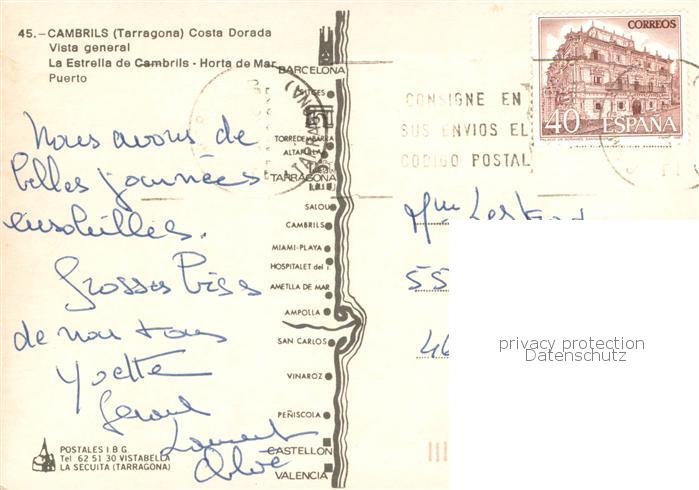 45.-CAMBRILS (Tarragona) Costa Dorada
Vista general
La Estrella de Cambrils - Horta de Mar
Puerto
Nous avons de
belles journées
ensoleillées.
Grosses bises
de nous tous
Yvette
Gerard
Laurent
POSTALES I.B.G.
Tel 62 51 30 VISTABELLA
LA SECUITA (TARRAGONA)
BARCELONA
SITGES
TORREDEMBARRA
ALTAFULLA
TARRAGONA
SALOU
CAMBRILS
MIAMI-PLAYA
HOSPITALET del I.
AMETLLA DE MAR
AMPOLLA
SAN CARLOS
VINAROZ
PEÑISCOLA
CASTELLON
VALENCIA
(TARRAGONA)
CONSIGNE EN
SUS ENVIOS EL
CODIGO POSTAL
CORREOS
40 ESPAÑA
Mme
55
46
privacy protection
Datenschutz